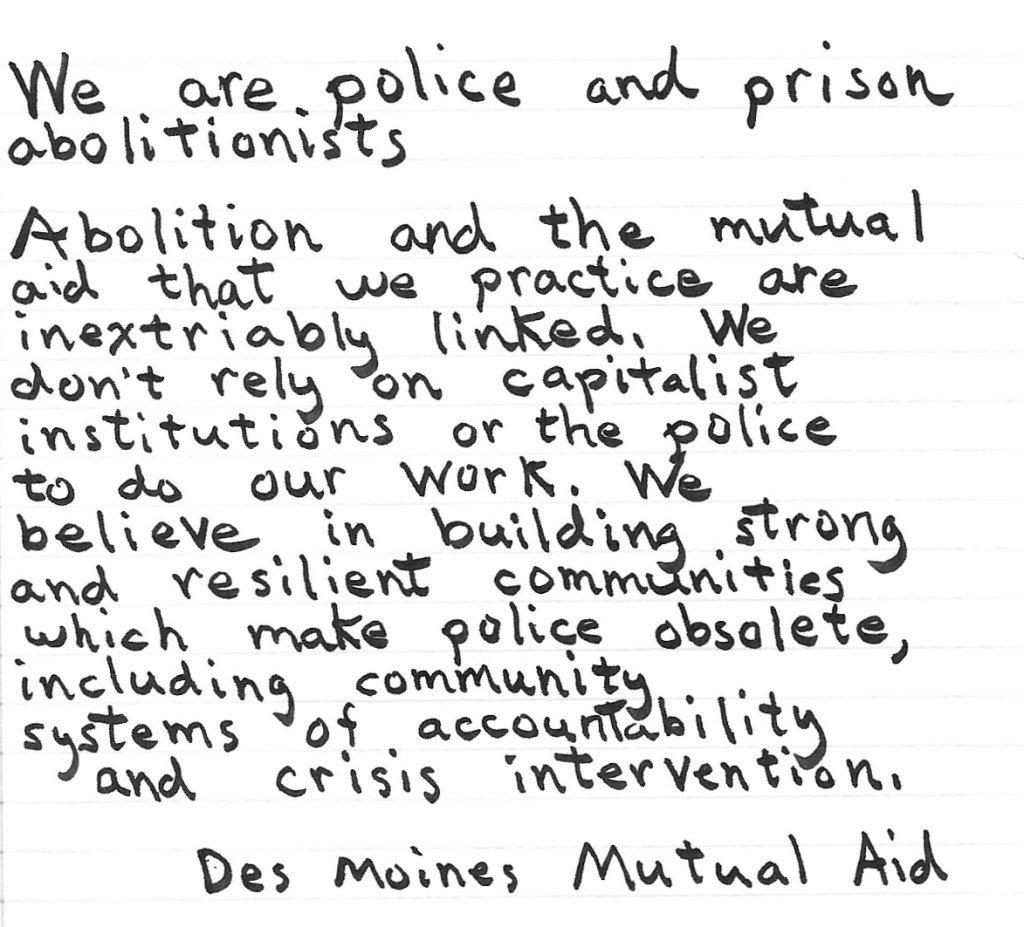 We are police and prison
abolitionists
Abolition and the mutual
aid that we practice are
inextriably linked. We
don't rely on capitalist
institutions or the police
to do our work. We
believe in building strong
and resilient communities
which make police obsolete,
including community
systems of accountability
and crisis intervention.
Des Moines Mutual Aid